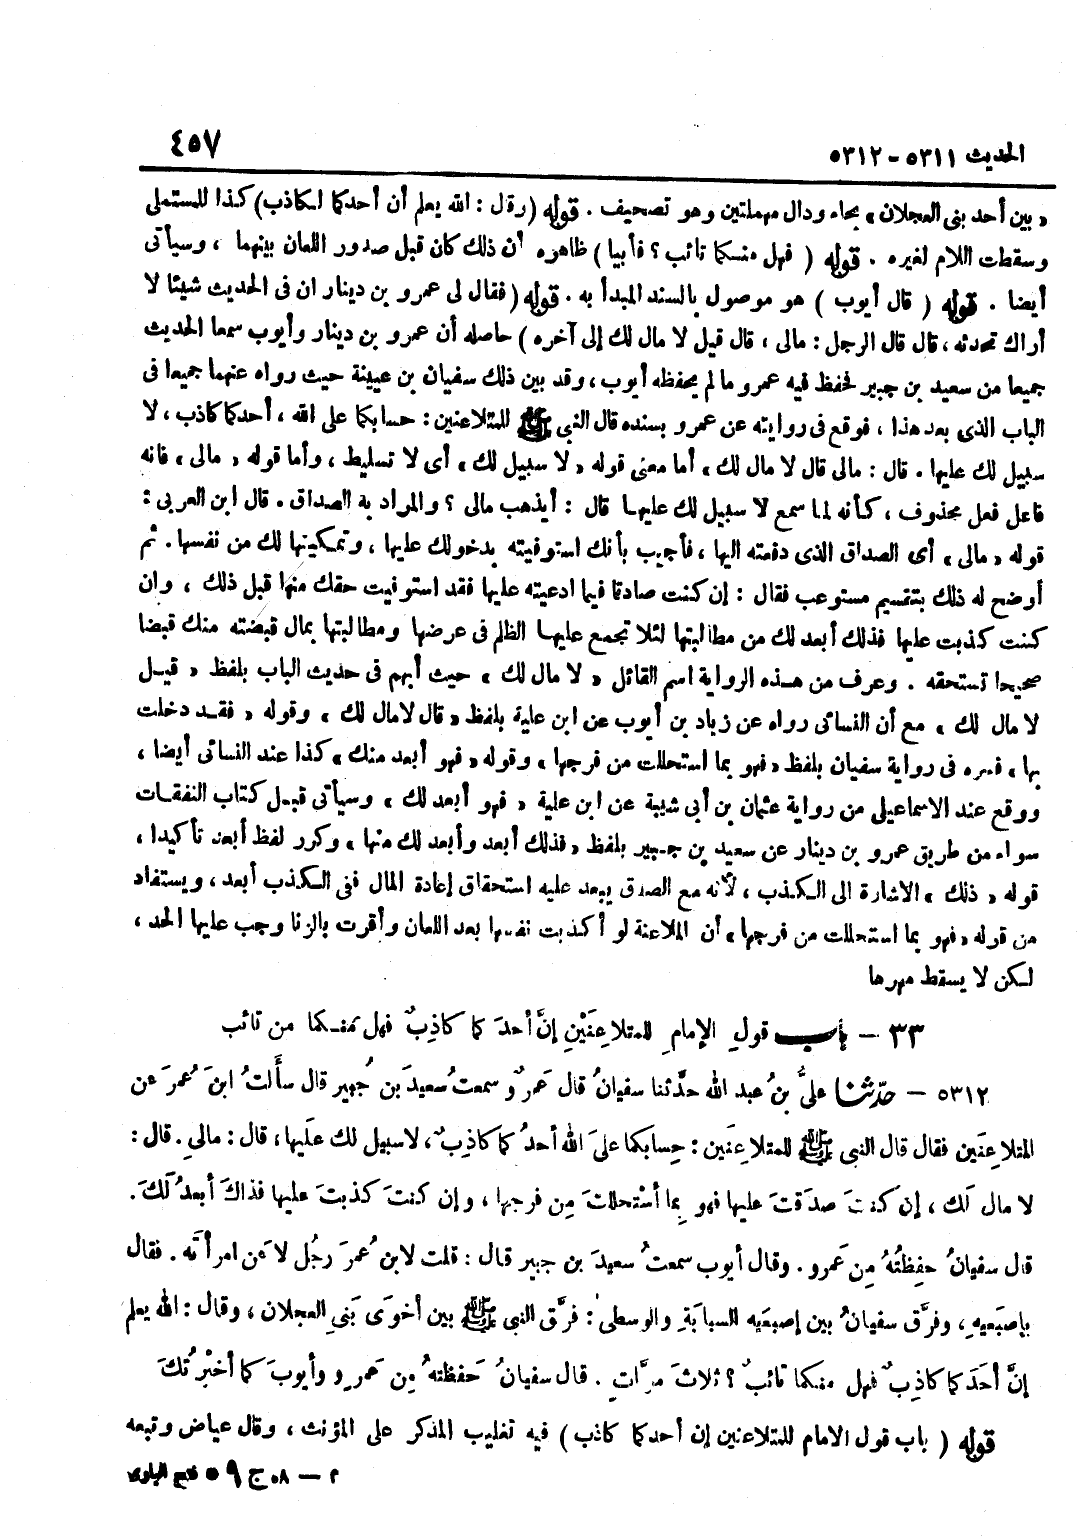 الحديث ٥٣١١ - ٥٣١٢
٤٥٧
« بين أحد بنى العجلان » بحاء ودال مهملتين وهو تصحيف . قوله ( وقال : الله يعلم أن أحدكما لكاذب) كذا للمستملى
وسقطت اللام لغيره . قوله ( فهل منكما تائب ؟ فأبيا ) ظاهره أن ذلك كان قبل صدور اللعان بينهما ، وسيأتى
أيضا . قوله ( قال أيوب ) هو موصول بالسند المبدأ به . قوله ( فقال لى عمرو بن دينار ان فى الحديث شيئا لا
أراك تحدثه ، قال قال الرجل : مالى ، قال قيل لا مال لك إلى آخره ) حاصله أن عمرو بن دينار وأيوب سمعا الحديث
جميعا من سعيد بن جبير فحفظ فيه عمرو ما لم يحفظه أيوب ، وقد بين ذلك سفيان بن عيينة حيث رواه عنهما جميعا فى
الباب الذى بعد هذا ، فوقع فى روايته عن عمرو بسنده قال النبى ﷺ للمتلاعنين : حسابكما على الله ، أحدكما كاذب ، لا
سبيل لك عليها . قال : مالى قال لا مال لك » أما معنى قوله « لا سبيل لك » أى لا تسليط ، وأما قوله « مالى » فانه
فاعل فعل محذوف ، كأنه لما سمع لا سبيل لك عليها قال : أيذهب مالى ؟ والمراد به الصداق . قال ابن العربى :
قوله « مالى » أى الصداق الذى دفعته اليها ، فأجيب بأنك استوفيته بدخولك عليها ، وتمكينها لك من نفسها . ثم
أوضح له ذلك بتقسيم مستوعب فقال : إن كنت صادقا فيما ادعيته عليها فقد استوفيت حقك منها قبل ذلك ، وان
كنت كذبت عليها فذلك أبعد لك من مطالبتها لئلا تجمع عليها الظلم فى عرضها ومطالبتها بمال قبضته منك قبضا
صحيحا تستحقه . وعرف من هذه الرواية اسم القائل « لا مال لك » حيث أبهم فى حديث الباب بلفظ « قيل
لا مال لك » مع أن النسائى رواه عن زياد بن أيوب عن ابن علية بلفظ « قال لا مال لك » وقوله « فقد دخلت
بها » فسره فى رواية سفيان بلفظ « فهو بما استحللت من فرجها » وقوله « فهو أبعد منك » كذا عند النسائى أيضا ،
ووقع عند الاسماعيلى من رواية عثمان بن أبى شيبة عن ابن علية « فهو أبعد لك » وسيأتى قبل كتاب النفقات
سواء من طريق عمرو بن دينار عن سعيد بن جبير بلفظ « فذلك أبعد وأبعد لك منها » وكرر لفظ أبعد تأكيدا ،
قوله « ذلك » الاشارة الى الكذب ، لأنه مع الصدق يبعد عليه استحقاق إعادة المال ففى الكذب أبعد ، ويستفاد
من قوله « فهو بما استحللت من فرجها » أن الملاعنة لو أكذبت نفسها بعد اللعان وأقرت بالزنا وجب عليها الحد ،
لكن لا يسقط مهرها
٣٣ - باب قولِ الإمامِ للمتلاعِنَيْنِ إنَّ أحدَكما كاذِبٌ فهل منكما من تائب
٥٣١٢ - حدّثنا علىُّ بنُ عبد الله حدَّثنا سفيانُ قال عمرٌو سمعتُ سعيدَ بن جُبيرٍ قال سألتُ ابنَ عُمرَ عن
المتلاعِنَين فقال قال النبى ﷺ للمتلاعِنَين : حِسابكما علىَ الله أحدُكما كاذِبٌ ، لا سبيل لك علَيها ، قال : مالى . قال :
لا مال لَك ، إن كنتَ صدَقتَ عليها فهو بِما استْحللتَ مِن فرجِها ، وإن كنتَ كذبتَ عليها فذاكَ أبعدُ لَكَ .
قال سفيانُ حفِظتُهُ مِن عَمرو . وقال أيوب سمعتُ سعيدَ بن جبير قال : قلت لابن عُمرَ رجُل لاعَن امرأته . فقال
بإصبَعيهِ ، وفرَّق سفيانُ بين إصبعَيه السبابةِ والوسطى : فرَّق النبى ﷺ بين أخوَى بَنى العجلان ، وقال : الله يعلم
إنَّ أحَدَكما كاذِبٌ فهل منكما تائبٌ ؟ ثلاثَ مرَّاتٍ . قال سفيانُ حَفظتهُ مِن عمرٍو وأيوبَ كما أخبرْتُكَ
قوله ( باب قول الامام للمتلاعنين إن أحدكما كاذب ) فيه تغليب المذكر على المؤنث ، وقال عياض وتبعه
م - ٥٨ ج ٩ * فتح البارى